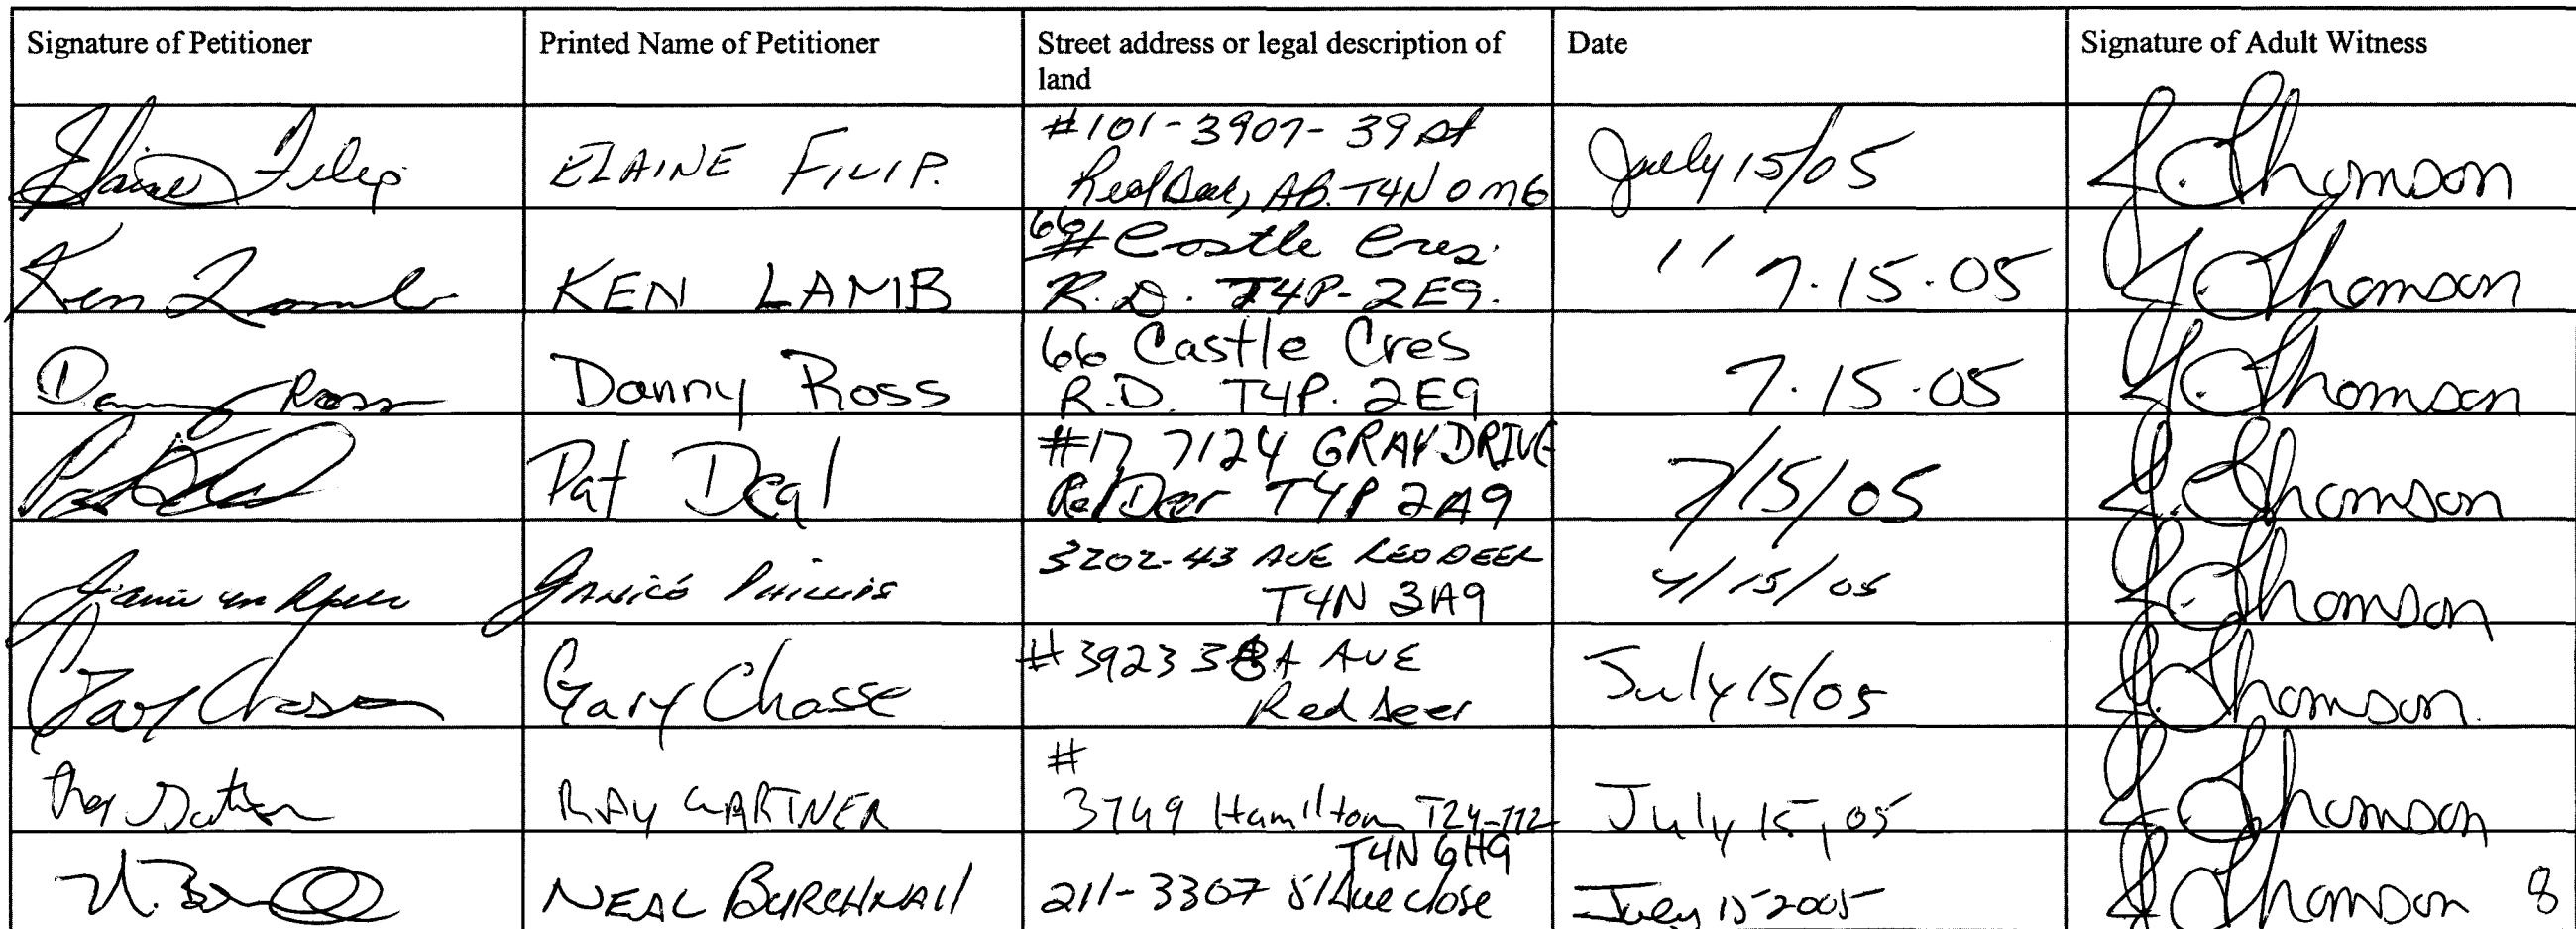 Signature of Petitioner
Printed Name of Petitioner
Street address or legal description of
land
Date
Signature of Adult Witness
Elaine Filip
ELAINE FILIP.
#101-3907-39 St
Red Deer, AB. T4N 0M6
July 15/05
J. Thomson
Ken Lamb
KEN LAMB
66 # Castle Cres.
R.D. T4P-2E9.
" 7.15.05
J. Thomson
Danny Ross
Danny Ross
66 Castle Cres
R.D. T4P. 2E9
7.15.05
J. Thomson
Pat Deal
Pat Deal
#17 7124 GRAY DRIVE
Red Deer T4P 2A9
7/15/05
J. Thomson
JANICE PHILLIPS
3202-43 AVE RED DEER
T4N 3A9
/15/05
J. Thomson
Gary Chase
Gary Chase
#3923 38A AVE
Red Deer
July 15/05
J. Thomson
RAY GARTNER
#
3749 Hamilton
July 15, 05
J. Thomson
NEAL BURCHNALL
T4N 6H9
211-3307 51 Ave close
July 15 2005
J. Thomson
8